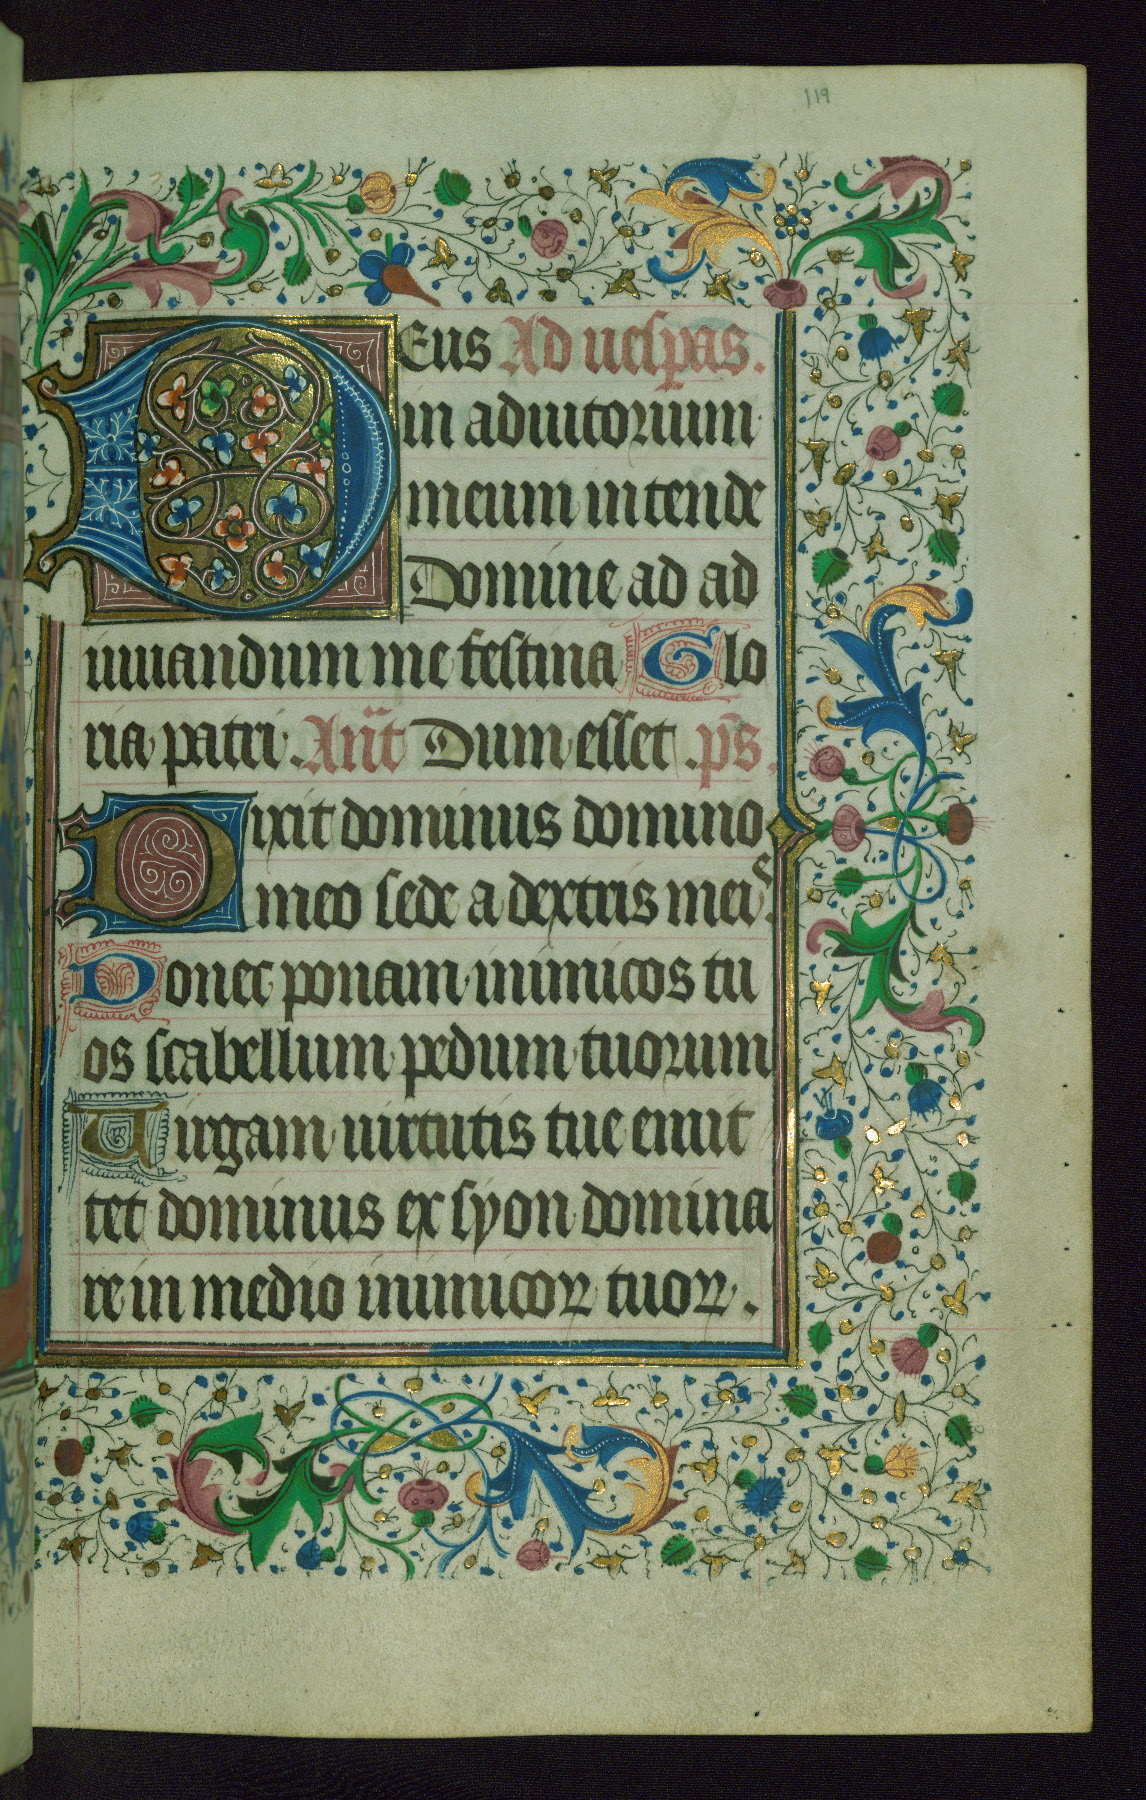 119
DEus Ad uespas.
in adiutorium
meum intende
Domine ad ad
iuuandum me festina Glo
ria patri. Añt Dum esset. ps̄.
Dixit dominus domino
meo sede a dextris meis.
Donec ponam inimicos tu
os scabellum pedum tuorum
Uirgam uirtutis tue emit
tet dominus ex syon domina
re in medio inimicoꝝ tuoꝝ.